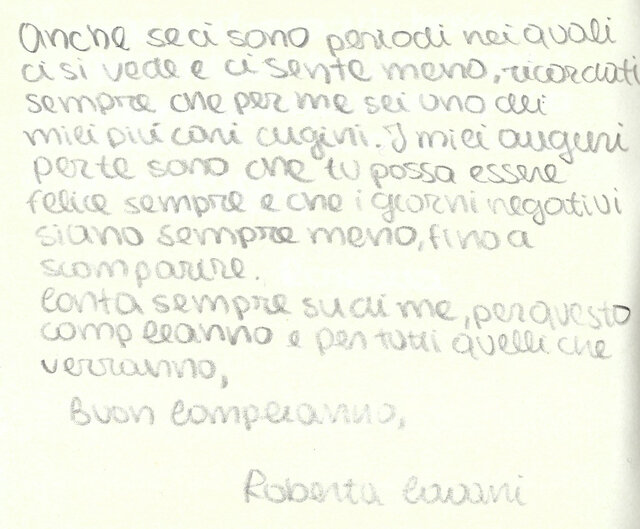 Anche se ci sono periodi nei quali
ci si vede e ci sente meno, ricordati
sempre che per me sei uno dei
miei più cari cugini. I miei auguri
per te sono che tu possa essere
felice sempre e che i giorni negativi
siano sempre meno, fino a
scomparire.
Conta sempre su di me, per questo
compleanno e per tutti quelli che
verranno,
Buon compleanno,
Roberta